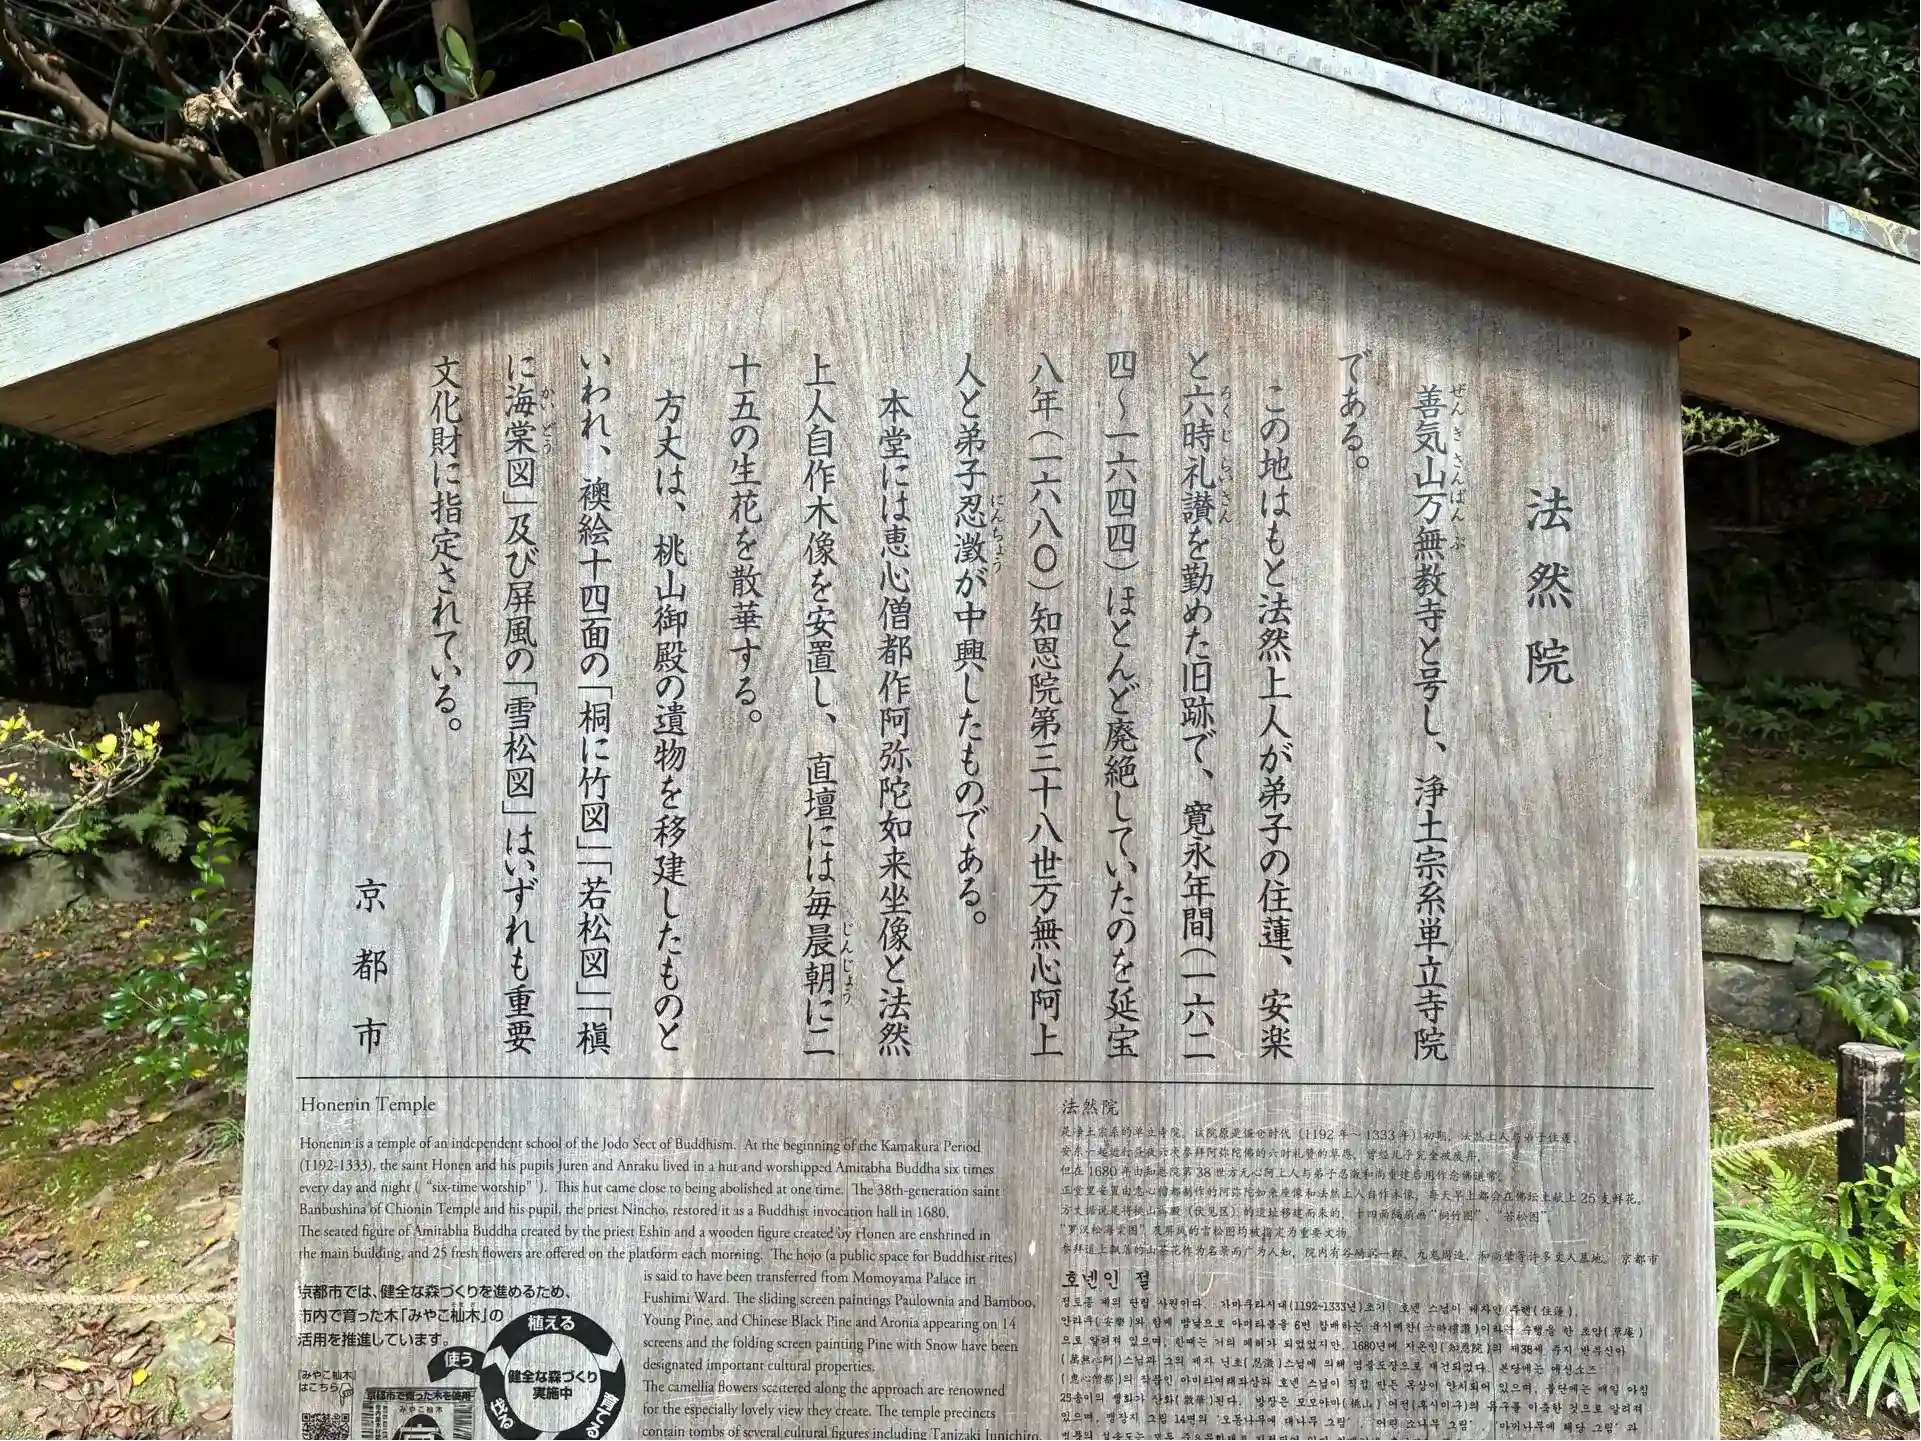 法然院
善気山万無教寺と号し、浄土宗系単立寺院
である。
この地はもと法然上人が弟子の住蓮、安楽
と六時礼讃を勤めた旧跡で、寛永年間(一六二
四~一六四四)ほとんど廃絶していたのを延宝
八年(一六八〇)知恩院第三十八世万無心阿上
人と弟子忍澂が中興したものである。
本堂には恵心僧都作阿弥陀如来坐像と法然
上人自作木像を安置し、直壇には毎晨朝に二
十五の生花を散華する。
方丈は、桃山御殿の遺物を移建したものと
いわれ、襖絵十四面の「桐に竹図」「若松図」「槇
に海棠図」及び屏風の「雪松図」はいずれも重要
文化財に指定されている。
京都市
Honenin Temple
Honenin is a temple of an independent school of the Jodo Sect of Buddhism. At the beginning of the Kamakura Period
(1192-1333), the saint Honen and his pupils Juren and Anraku lived in a hut and worshipped Amitabha Buddha six times
every day and night ( “six-time worship” ). This hut came close to being abolished at one time. The 38th-generation saint
Banbushina of Chionin Temple and his pupil, the priest Nincho, restored it as a Buddhist invocation hall in 1680.
The seated figure of Amitabha Buddha created by the priest Eshin and a wooden figure created by Honen are enshrined in
the main building, and 25 fresh flowers are offered on the platform each morning. The hojo (a public space for Buddhist rites)
is said to have been transferred from Momoyama Palace in
Fushimi Ward. The sliding screen paintings Paulownia and Bamboo,
Young Pine, and Chinese Black Pine and Aronia appearing on 14
screens and the folding screen painting Pine with Snow have been
designated important cultural properties.
The camellia flowers scattered along the approach are renowned
for the especially lovely view they create. The temple precincts
contain tombs of several cultural figures including Tanizaki Junichiro,
京都市では、健全な森づくりを進めるため、
市内で育った木「みやこ杣木」の
活用を推進しています。
「みやこ杣木」
はこちら
京都市で育った木を使用
みやこ杣木
植える
育てる
伐る
使う
健全な森づくり
実施中
法然院
是净土宗系的单立寺院。该院原是镰仓时代(1192年~1333年)初期,法然上人与弟子住莲、
安乐一起进行昼夜六次参拜阿弥陀佛的六时礼赞的草庵,曾经几乎完全被废弃,
但在1680年由知恩院第38世万无心阿上人与弟子忍澂和尚重建后用作念佛道场。
正堂里安置由惠心僧都制作的阿弥陀如来座像和法然上人自作木像,每天早上都会在佛坛上献上25支鲜花。
方丈据说是将桃山御殿(伏见区)的遗址移建而来的,十四面隔扇画“桐竹图”、“若松图”、
“罗汉松海棠图”及屏风的雪松图均被指定为重要文物。
호넨인 절